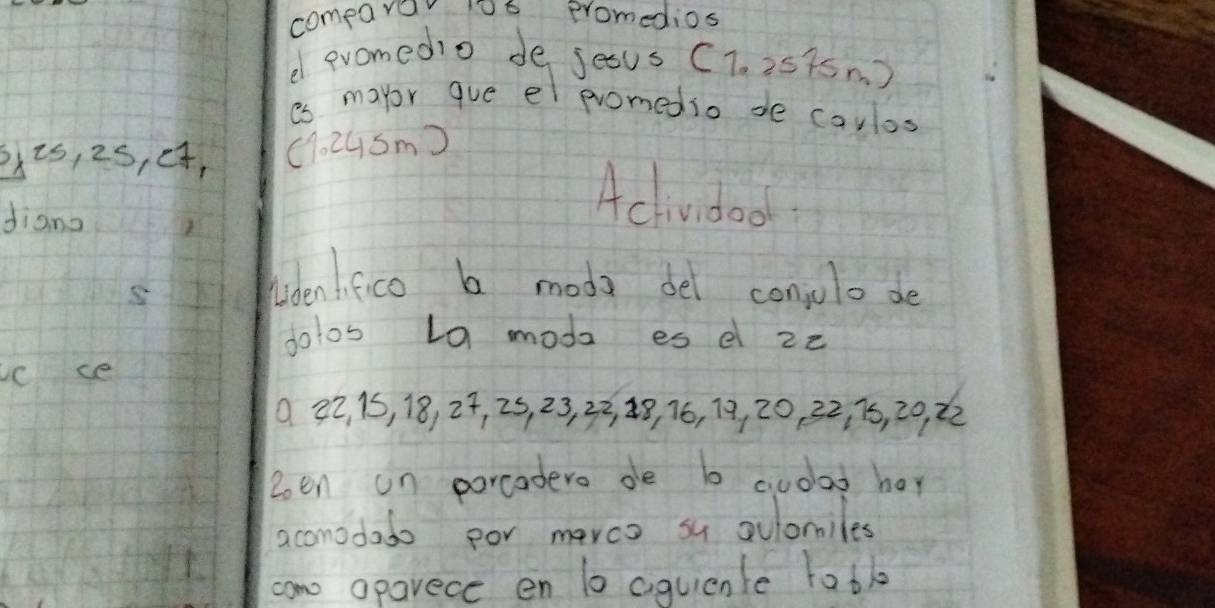 comparar los promedios
el promedio de Jesus (1.2575m)
es mayor que el promedio de carlos
(1.245m)
Actividad
1identifico la moda del conjuto de
datos La moda es el 22
a 22, 15, 18, 27, 25, 23, 22, 28, 16, 19, 20, 22, 15, 20, 22
2.en un parcadero de la ciudad hay
acomodado por marca su automiles
como aparece en la ciguiente tabla
25, 25, 27,
diana
s
ce